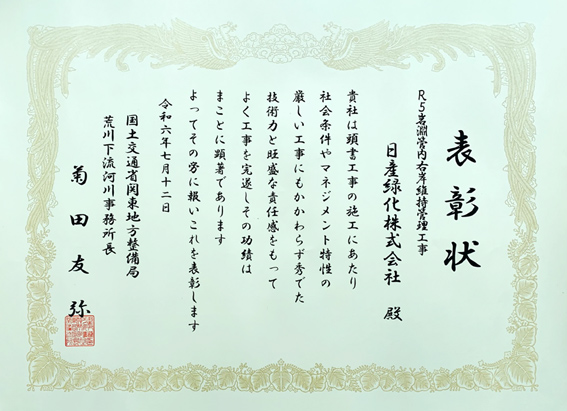 表彰状
R5岩淵管内右岸維持管理工事
日産緑化株式会社 殿
貴社は頭書工事の施工にあたり
社会条件やマネジメント特性の
厳しい工事にもかかわらず秀でた
技術力と旺盛な責任感をもって
よく工事を完遂しその功績は
まことに顕著であります
よってその労に報いこれを表彰します
令和六年七月十二日
国土交通省関東地方整備局
荒川下流河川事務所長
菊田友弥